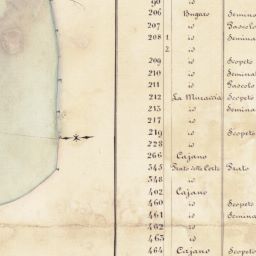 90 id
206 Bugaro Semina
207 id Pascolo
208 1 id Semina
2 id
209 id Scopeto
210 id Semina
211 id Pascolo
212 La Muraccia Scopeto
213 id Semina
215 id
217 id
219 id Scopeto
228 id
266 Cajano
345 Prato delle Corte Prato
348 id
402 Cajano
460 id Scopeto
461 id Semina
462 id
463 id
464 Cajano Scopeto